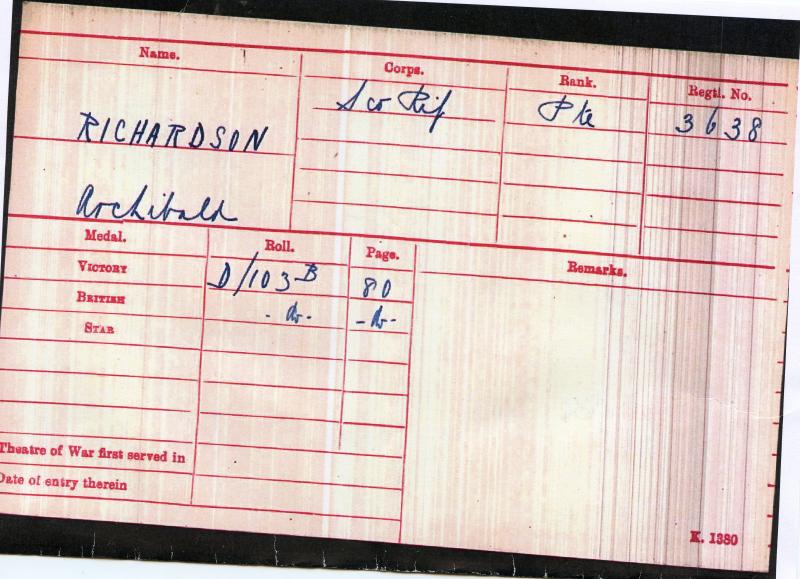 Name. Corps. Rank. Regtl. No.
RICHARDSON Sco Rif Pte 3638
Archibald
Medal. Roll. Page. Remarks.
VICTORY D/103B 80
BRITISH - do - - do -
STAR
Theatre of War first served in
Date of entry therein
K. 1380